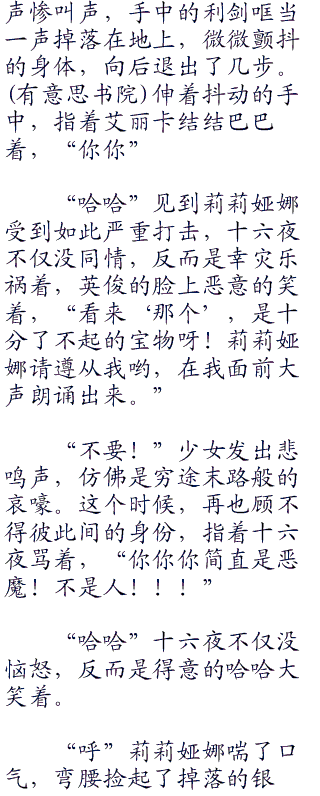 声惨叫声，手中的利剑哐当
一声掉落在地上，微微颤抖
的身体，向后退出了几步。
(有意思书院)伸着抖动的手
中，指着艾丽卡结结巴巴
着，“你你”
“哈哈”见到莉莉娅娜
受到如此严重打击，十六夜
不仅没同情，反而是幸灾乐
祸着，英俊的脸上恶意的笑
着，“看来‘那个’，是十
分了不起的宝物呀！莉莉娅
娜请遵从我哟，在我面前大
声朗诵出来。”
“不要！”少女发出悲
鸣声，仿佛是穷途末路般的
哀嚎。这个时候，再也顾不
得彼此间的身份，指着十六
夜骂着，“你你你简直是恶
魔！不是人！！！”
“哈哈”十六夜不仅没
恼怒，反而是得意的哈哈大
笑着。
“呼”莉莉娅娜喘了口
气，弯腰捡起了掉落的银